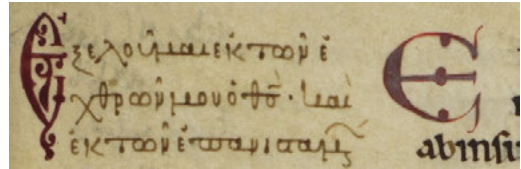 Ἐξελοῦ μαι ἐκ τῶν ἐ
χθρῶν μου ὁ θς̅· καὶ
ἐκ τῶν ἐπανισταμ
E
abinsu